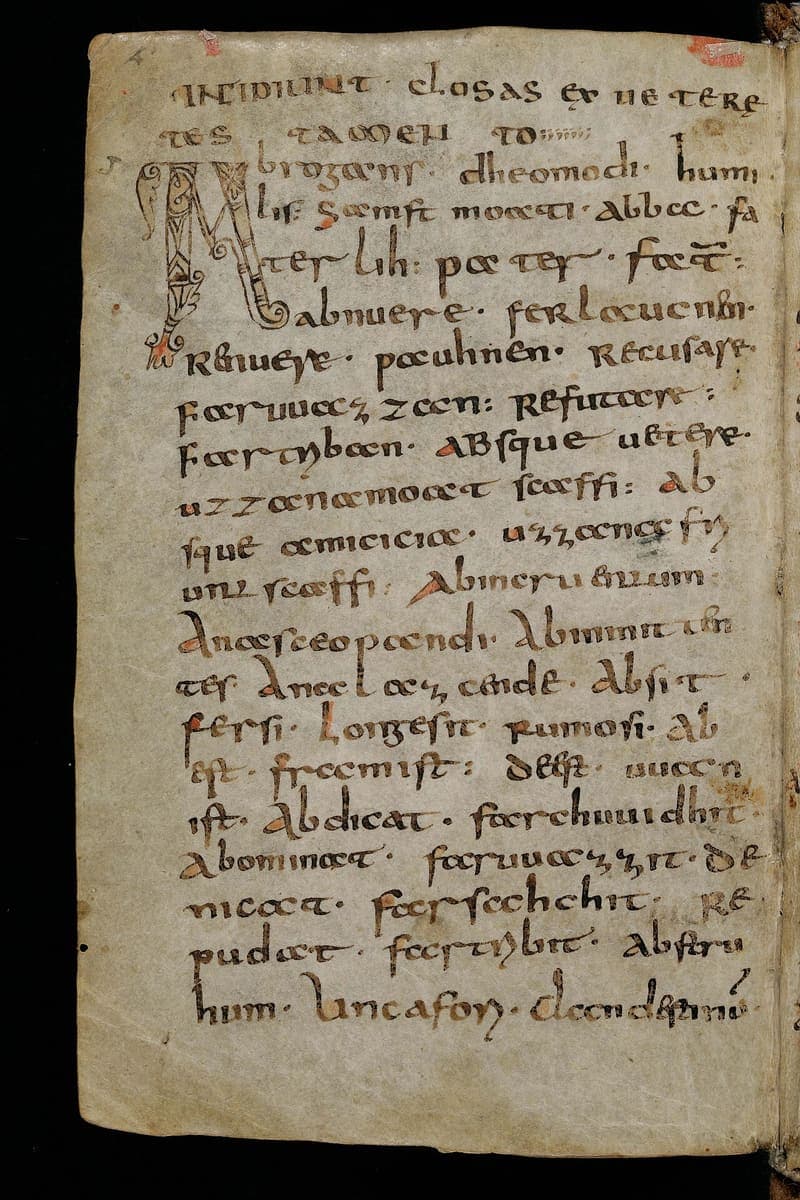 INCIPIUNT CLOSAS EX UETERE
TES TAMEN TO
Abrogans. dheomodi. humi
lis. samft moati. Abba. fa
ter lih: pater. fat̄:
abnuere. ferlaucnen.
Renuere. pauhnen. Recusare.
faruuazzan: Refutare:
fartriban. ABsque uetere.
uzzana moat scaffi: Ab
sque amicicia. uzzana fri
unt scaffi. Abincruentum.
Anasceopandi. Abminiten
tes. Anaclaz ende. Absit.
fersi. Longe sit. rumo si. Ab
est. fram ist: Deest. uuan
ist. Abdicat. farchuuidhit.
Abominat. faruuazzit. De
nicat. farsahchit. Re
pudat. fartribit. Abstru
hum.